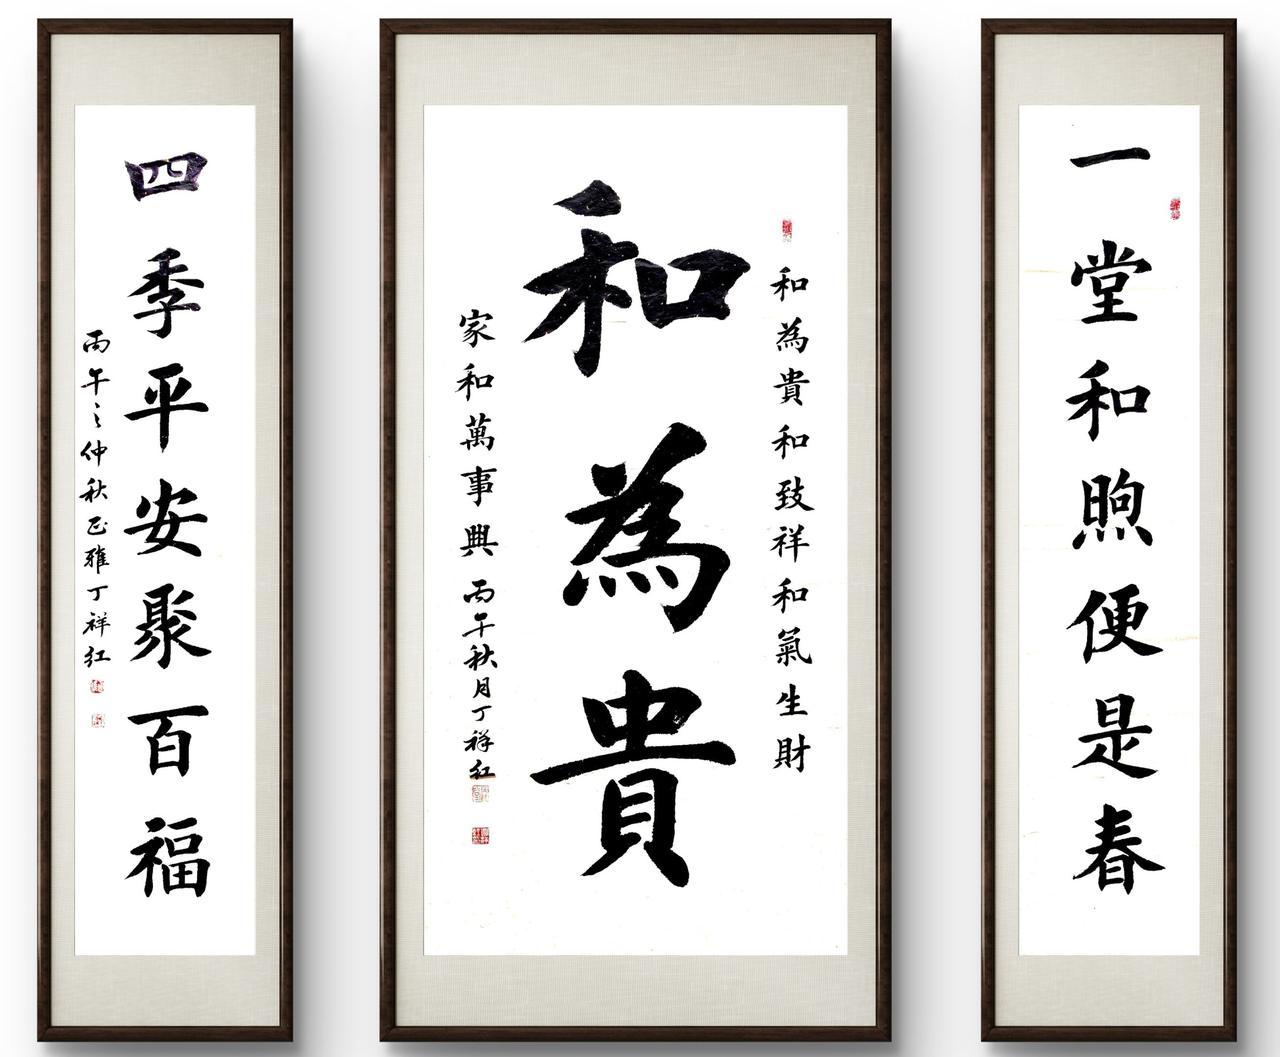 一堂和煦便是春
和為貴和致祥和氣生財
和為貴
家和萬事興 丙午秋月丁祥红
四季平安聚百福
丙午之仲秋正雅丁祥红